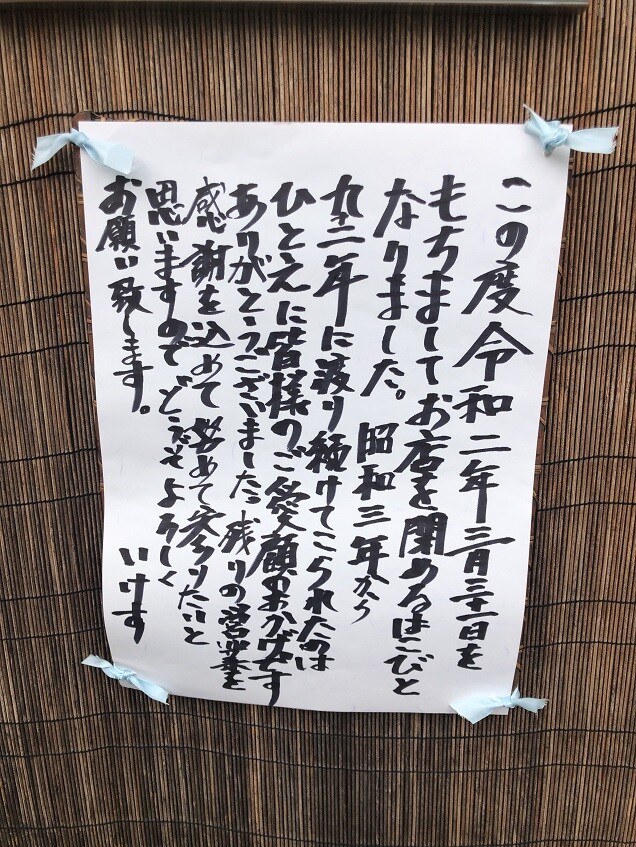 この度令和二年三月三十一日を
もちましてお店を閉めるはこびと
なりました。昭和三年から
九十二年に渡り続けてこられたのは
ひとえに皆様のご愛顧のおかげです
ありがとうございました。残りの営業を
感謝を込めて努めて参りたいと
思いますのでどうぞよろしく
お願い致します。
いけす